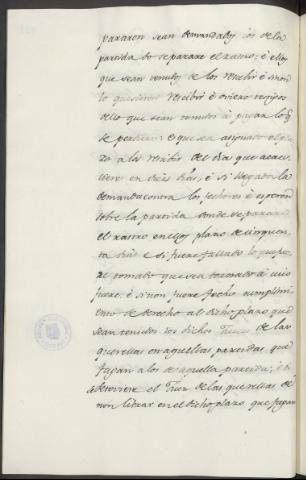 pararon sean demandados los de la
partida do se parare el rastro; é ellos
que sean tenudos de los recebir é si non
lo quisieren recibir é oviere testigos
dello que sean tenudos á pagar lo que
se perdiere: é que sea asignado el plazo
a los recibir del dia que acaesciere
en tres dias, é si llegado la
demanda contra los
sobre la partida donde se parare
el rastro en ellos plazo de cinquenta
dias é si fuere fallado lo que fue
tomado que sea tornado á cuio
fuere: é si non fuere fecho cumplimiento
de derecho al dicho plazo que
sean tenidos los dichos Jueces de las
querellas en aquellas partidas que
fagan a los de aquella partida; é si
detoviere el Juez de las querellas de
non librar en el dicho plazo, que pague